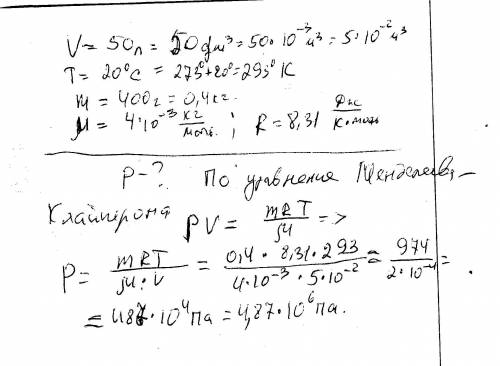 V = 50л = 50дм³ = 50·10⁻³м³ = 5·10⁻²м³
T = 20°C = 273°+20° = 293°K
m = 400г = 0,4кг.
μ = 4·10⁻³ кг/моль ; R = 8,31 Дж/К·моль
P-? По уравнение Менделеева-
Клайперона PV = mRT/μ =>
P = mRT/μ·V = 0,4·8,31·293/4·10⁻³·5·10⁻² = 974/2·10⁻⁴ =
= 487·10⁴Па = 4,87·10⁶Па.